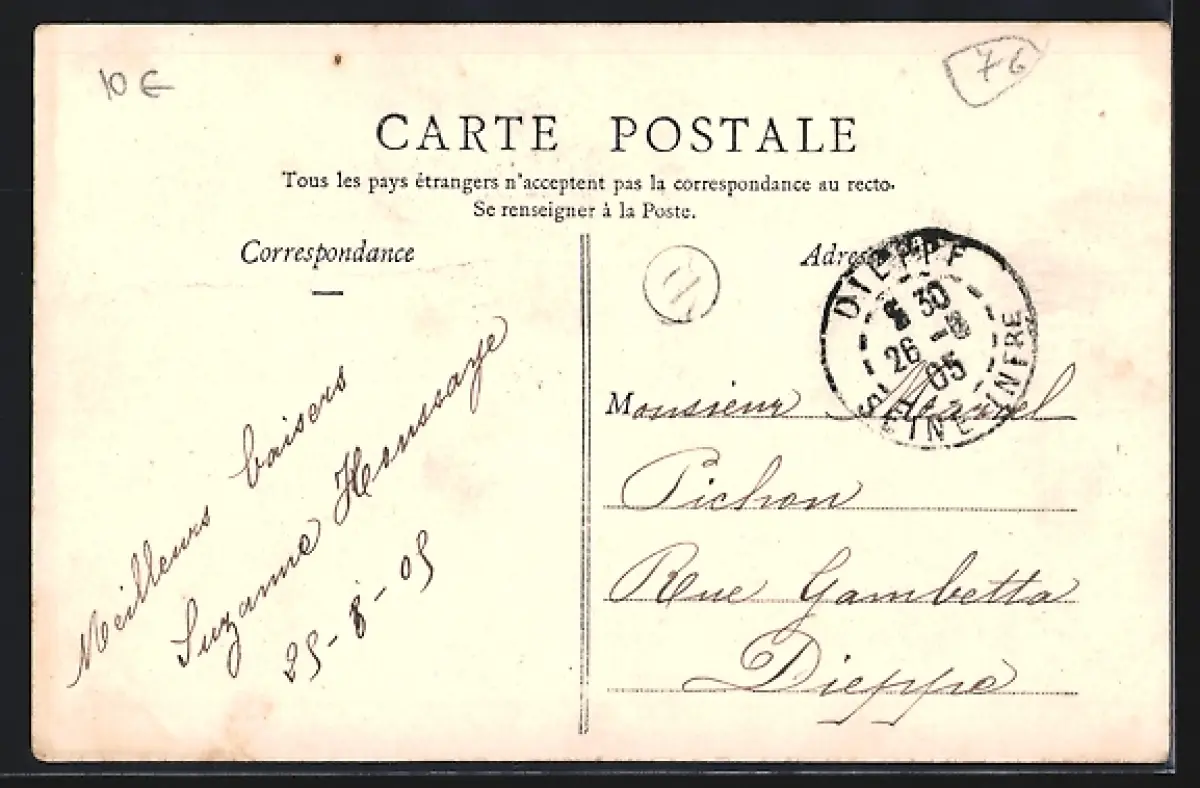 10€
76
CARTE POSTALE
Tous les pays étrangers n'acceptent pas la correspondance au recto.
Se renseigner à la Poste.
Correspondance
Meilleurs baisers
Suzanne Houssaye
25-8-05
Adresse
DIEPPE
30
26 -8
05
SEINE-INFRE
Monsieur Marcel
Pichon
Rue Gambetta
Dieppe